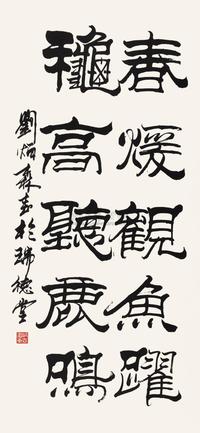 春煖觀魚躍
龝高聽鹿鳴
劉炳森書於瑞德堂